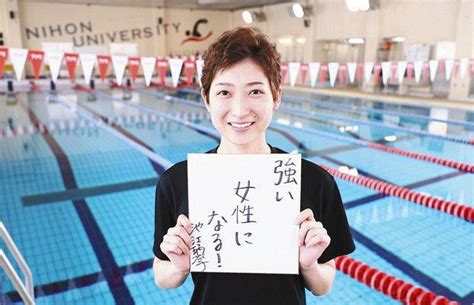 NIHON
UNIVERSITY
強い
女性に
なる!
池江